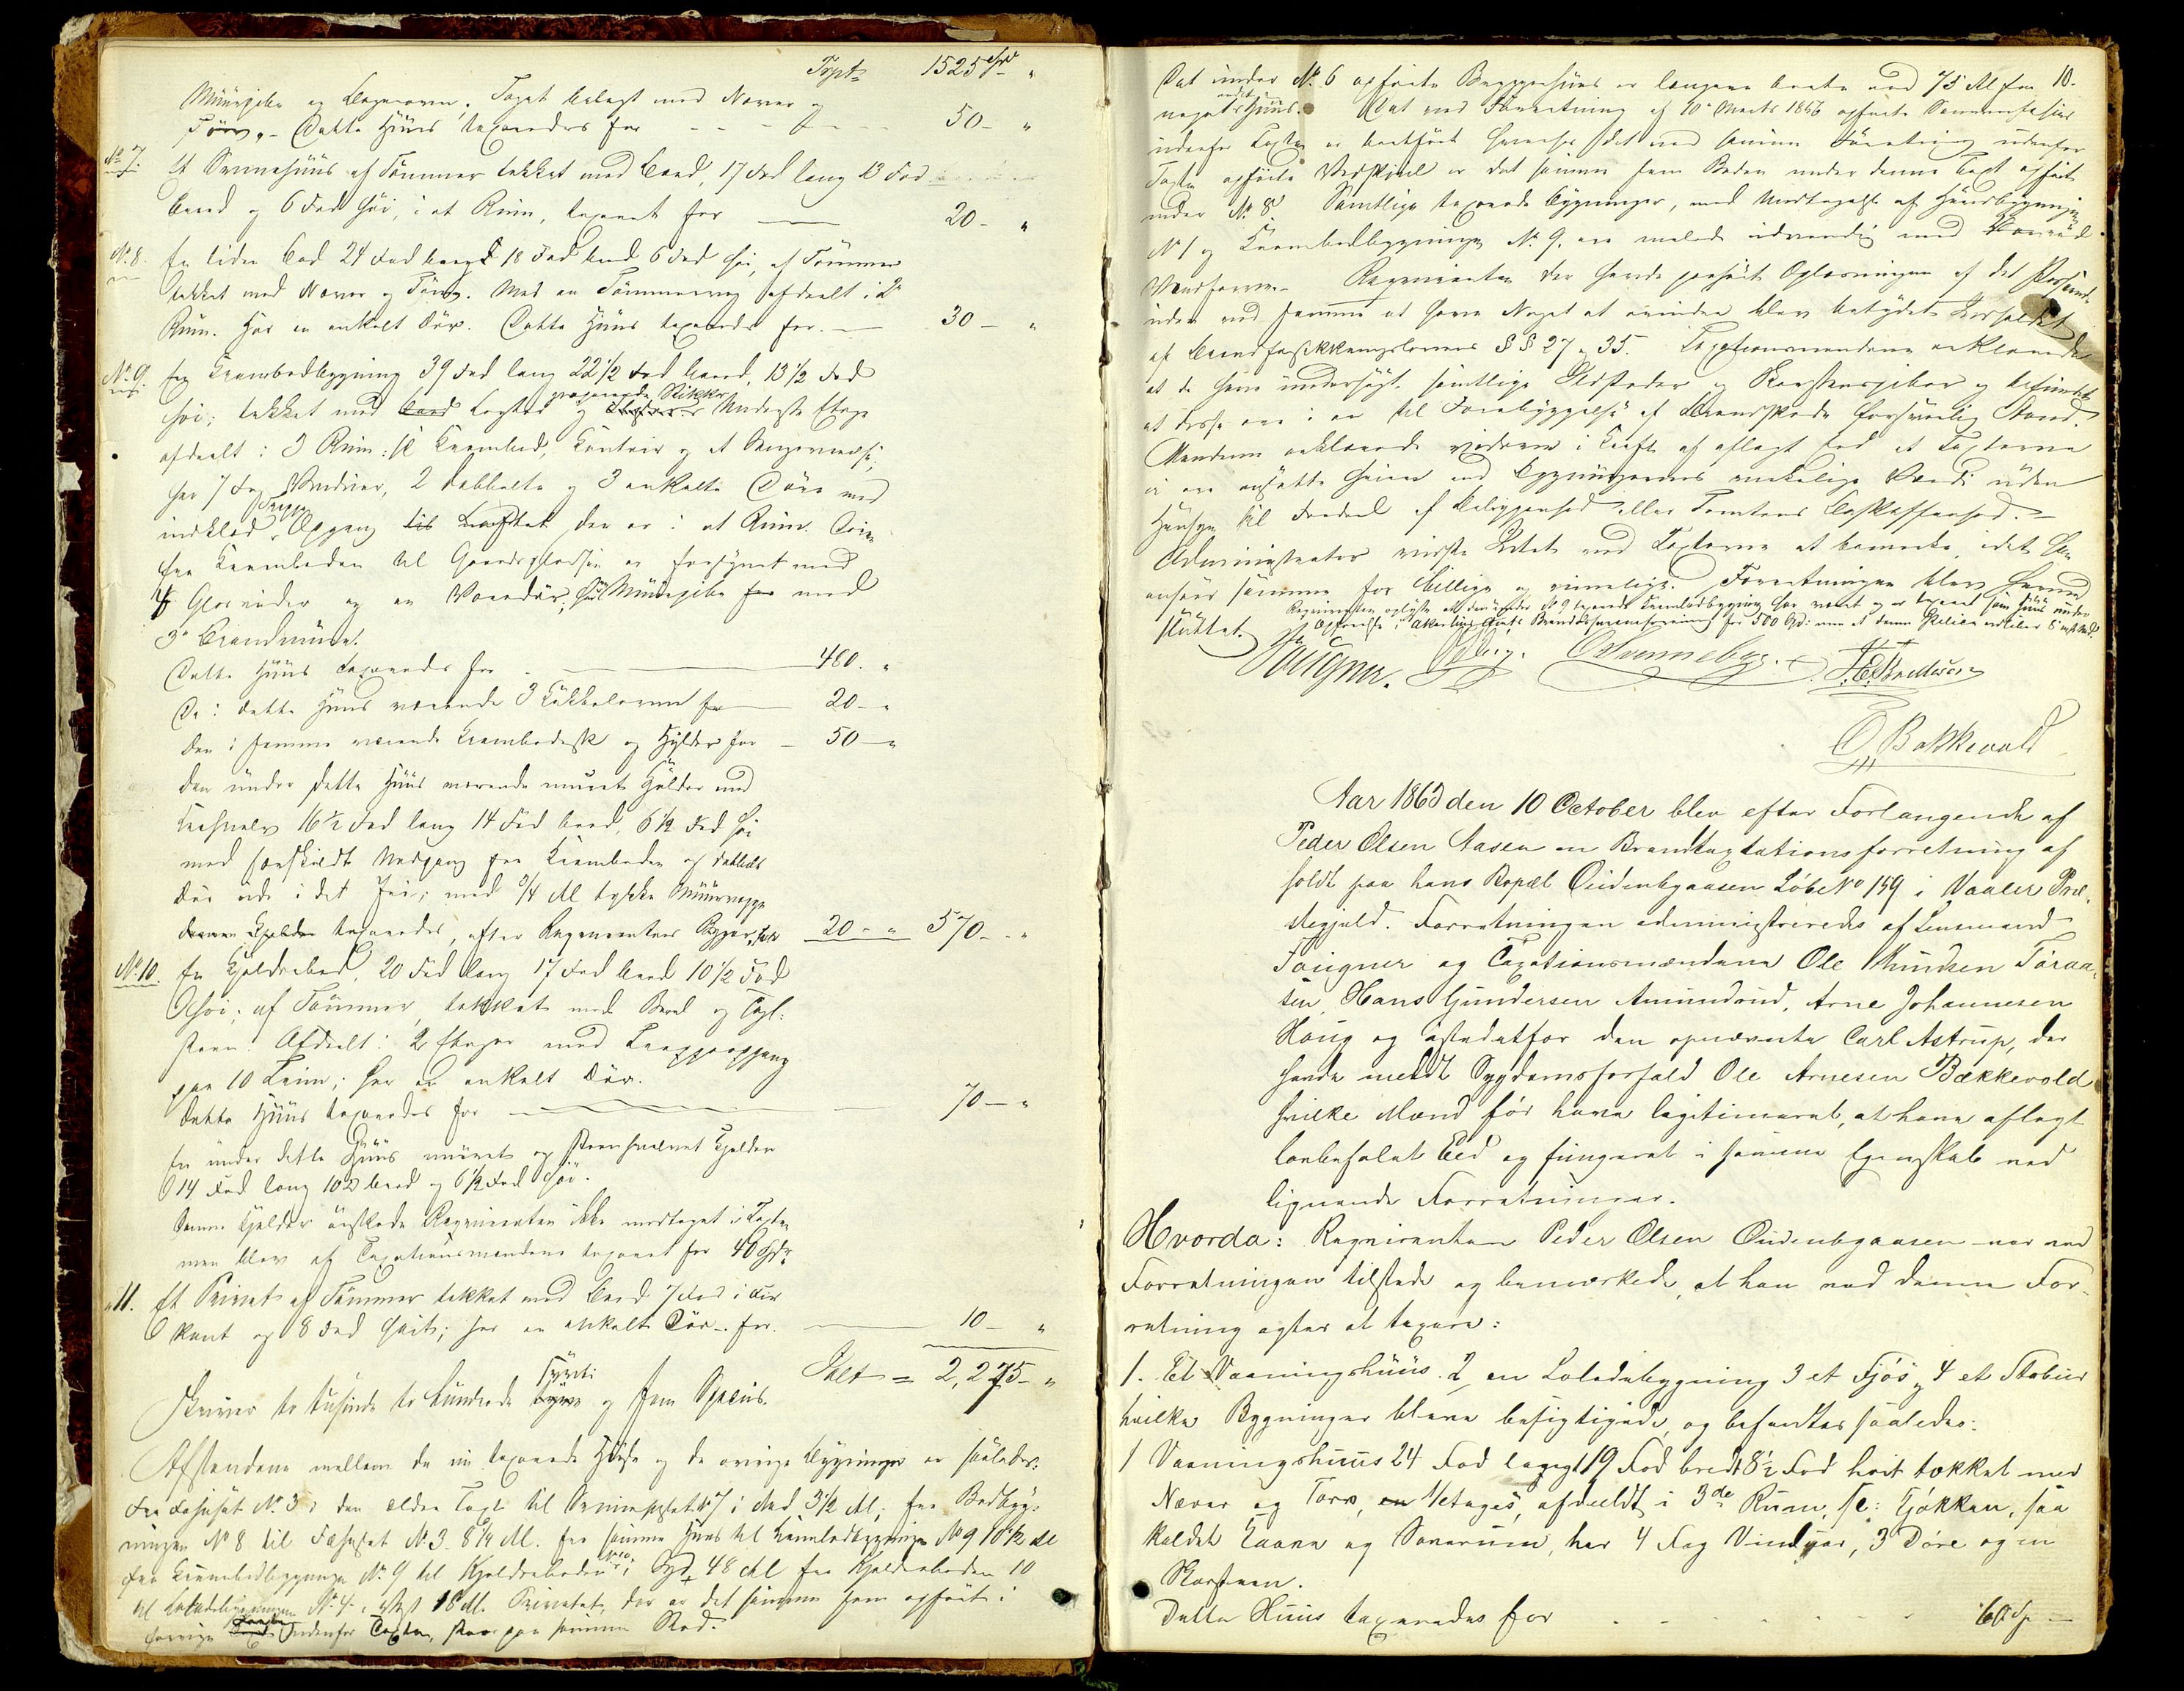 Trpt= 1525 Spd "
Muurpibe og Bageroven. Taget belagt med Næver og
Törv. - Dette Huus taxeredes for - - - 50 - "
No 7. Et Svinehuus af Tømmer tekket med Bord, 17 Fod lang 13 Fod
bred og 6 Fod høi, i et Rum, taxeret for — 20 - "
No 8. En liden Bod 24 Fod lang 18 Fod bred 6 Fod høi, af Tømmer
tekket med Næver og Törv. Med en Tømmervæg afdeelt i 2de
Rum. Har en enkelt Dör. Dette Huus taxeredes for. — 30 - "
No 9. En Krambodbygning 39 Fod lang 22 1/2 Fod bred, 13 1/2 Fod
høi; tekket med Bord og Underste Etage
afdeelt i 3 Rum: sc Krambod, Contoir og et Sengeværelse;
har 7 Fag Vinduer, 2 dobbelte og 3 enkelte Döre med
indklæd Trappe Opgang til Loftet der er i et Rum. Doren
fra Kramboden til Gaardspladsen er forsynet med
4 Glasruder og en Voredör; har Muurpibe med
3de Brandmure.
Dette Huus taxeredes for — 480. "
De i dette Huus værende 3 Kakkelovne for 20 - "
Den i samme værende Krambodesk og Hylder for - 50 - "
Den under dette Huus værende murede Kjelder med
16 1/2 Fod lang 14 Fod bred, 6 1/2 Fod høi
med særskildt Nedgang fra Kramboden og dobbelt
Dör ude i det Frie; med 3/4 Al tykke Muurvægge
taxeredes, efter Reqvirentens 20 - " 570 - "
No 10. En Kjelderbod, 20 Fod lang 17 Fod bred 10 1/2 Fod
høi; af Tømmer, tekket med Bord og Tagl-
steen. Afdeelt i 2 Etager med Trappeopgang
paa 10 Trin; har en enkelt Dör.
Dette Huus taxeredes for — 70 - "
En under dette Huus muret og Steenhvælvet Kjelder
14 Fod lang 10 bred og 6 1/2 Fod høi.
Denne Kjelder ønskede Reqvirenten ikke medtaget i Taxten
men blev af Taxationsmændene taxeret for 40 Spdr
" 11. Et Privet af Tømmer tekket med Bord 7 Fod i Fir-
kant og 8 Fod høit; har en enkelt Dör - for. — 10 - "
Ialt = 2,225 - "
Skriver to tusinde to hundrede Tyveti og fem Species.
Afstanden mellem de nu taxerede Huse og de øvrige Bygninger er saaledes:
Fra Fæhuset No 3 i den ældre Taxt til Svinehuset No 7 i Nord 3 1/2 Al; fra Bodbyg-
ningen No 8 til Fæhuset No 3 8 1/4 Al. fra samme Huus til Krambodbygningen No 9 10 1/2 Al
fra Krambodbygningen No 9 til Kjelderboden No 10 i Syd 48 Al fra Kjelderboden 10
til Ladebygningen No 4 i Vest 18 Al. Privetet, der er det samme som opført i
forrige Taxt udenfor Taxten, staar paa samme Sted.
Det under No 6 opførte Bryggerhuus er længere borte end 75 Al fra 10.
noget andet Huus. Det ved Forretning af 10de Marts 1856 opførte Svinehuus
udenfor Taxten er bortført hvorfor det ved samme Forretning udenfor
Taxten opførte Vedskjul er det samme som Boden under denne Taxt opført
under No 8. Samtlige taxerede Bygninger, med Undtagelse af Huusbygningen
No 1 og Krambodbygningen No 9, ere malede udvendig med
Vandfarve. Reqvirenten der havde paahört Oplæsningen af det Passerede
uden ved samme at have Noget at erindre blev betydet Indholdet
af Brandforsikkringslovens §§ 27 & 35. Taxationsmændene erklærede
at de have undersøgt samtlige Ildsteder og Skorsteenspiber og befundet
at disse ere i en til Forebyggelse af Brandskade forsvarlig Stand.
Mændene erklærede videre i Kraft af aflagt Eed at Taxterne
ei ere ansatte høiere end Bygningernes virkelige Værdi uden
Hensyn til Fordeel af Beliggenhed eller Tomtens Beskaffenhed. -
Administrator vidste Intet ved Taxterne at bemærke, idet han
anser samme for billige og rimelige. Forretningen blev hermed
Reqvirenten oplyste at den under No 9 taxerede Krambodbygning har været og er taxeret som Huus under
Opførelse i Akershus Amts Brandassuranceforening for 500 Spd: men at denne Police udløber
sluttet.
Taugner. O Bakkevold
Aar 1863 den 10 October blev efter Forlangende af
Peder Olsen Aasen en Brandtaxtationsforretning af
holdt paa hans Bopæl Oudenbyaasen Løbe No 159 i Vaaler Præ-
stegjeld. Forretningen administreredes af Lensmand
Taugner og Taxationsmændene Ole Knudsen Toraa-
sen, Hans Gundersen Amundrud, Arne Johannesen
Houg og istedetfor den opnævnte Carl Astrup, der
havde meldt Sygdomsforfald Ole Arnesen Bækkevold
hvilke Mænd før have legitimeret, at have aflagt
lovbefalet Eed og fungeret i samme Egenskab ved
lignende Forretninger.
Hvorda: Reqvirenten Peder Olsen Oudenbyaasen var ved
Forretningen tilstede og bemærkede, at han ved denne For-
retning agter at taxere:
1. Et Vaaningshuus. 2 en Ladebygning 3 et Fjøs og 4 et Stabur
hvilke Bygninger bleve besigtigede, og befandtes saaledes:
1 Vaaningshuus 24 Fod langt 19 Fod bredt 8 1/2 Fod hoit tækket med
Næver og Torv, en 1 Etages, afdeeldt i 3de Rum, sc: Kjøkken, saa
kaldet Kaane og Soverum, har 4 Fag Vinduer, 3 Døre og en
Skorsteen.
Dette Huus taxeredes for - - - - 60 Sp —